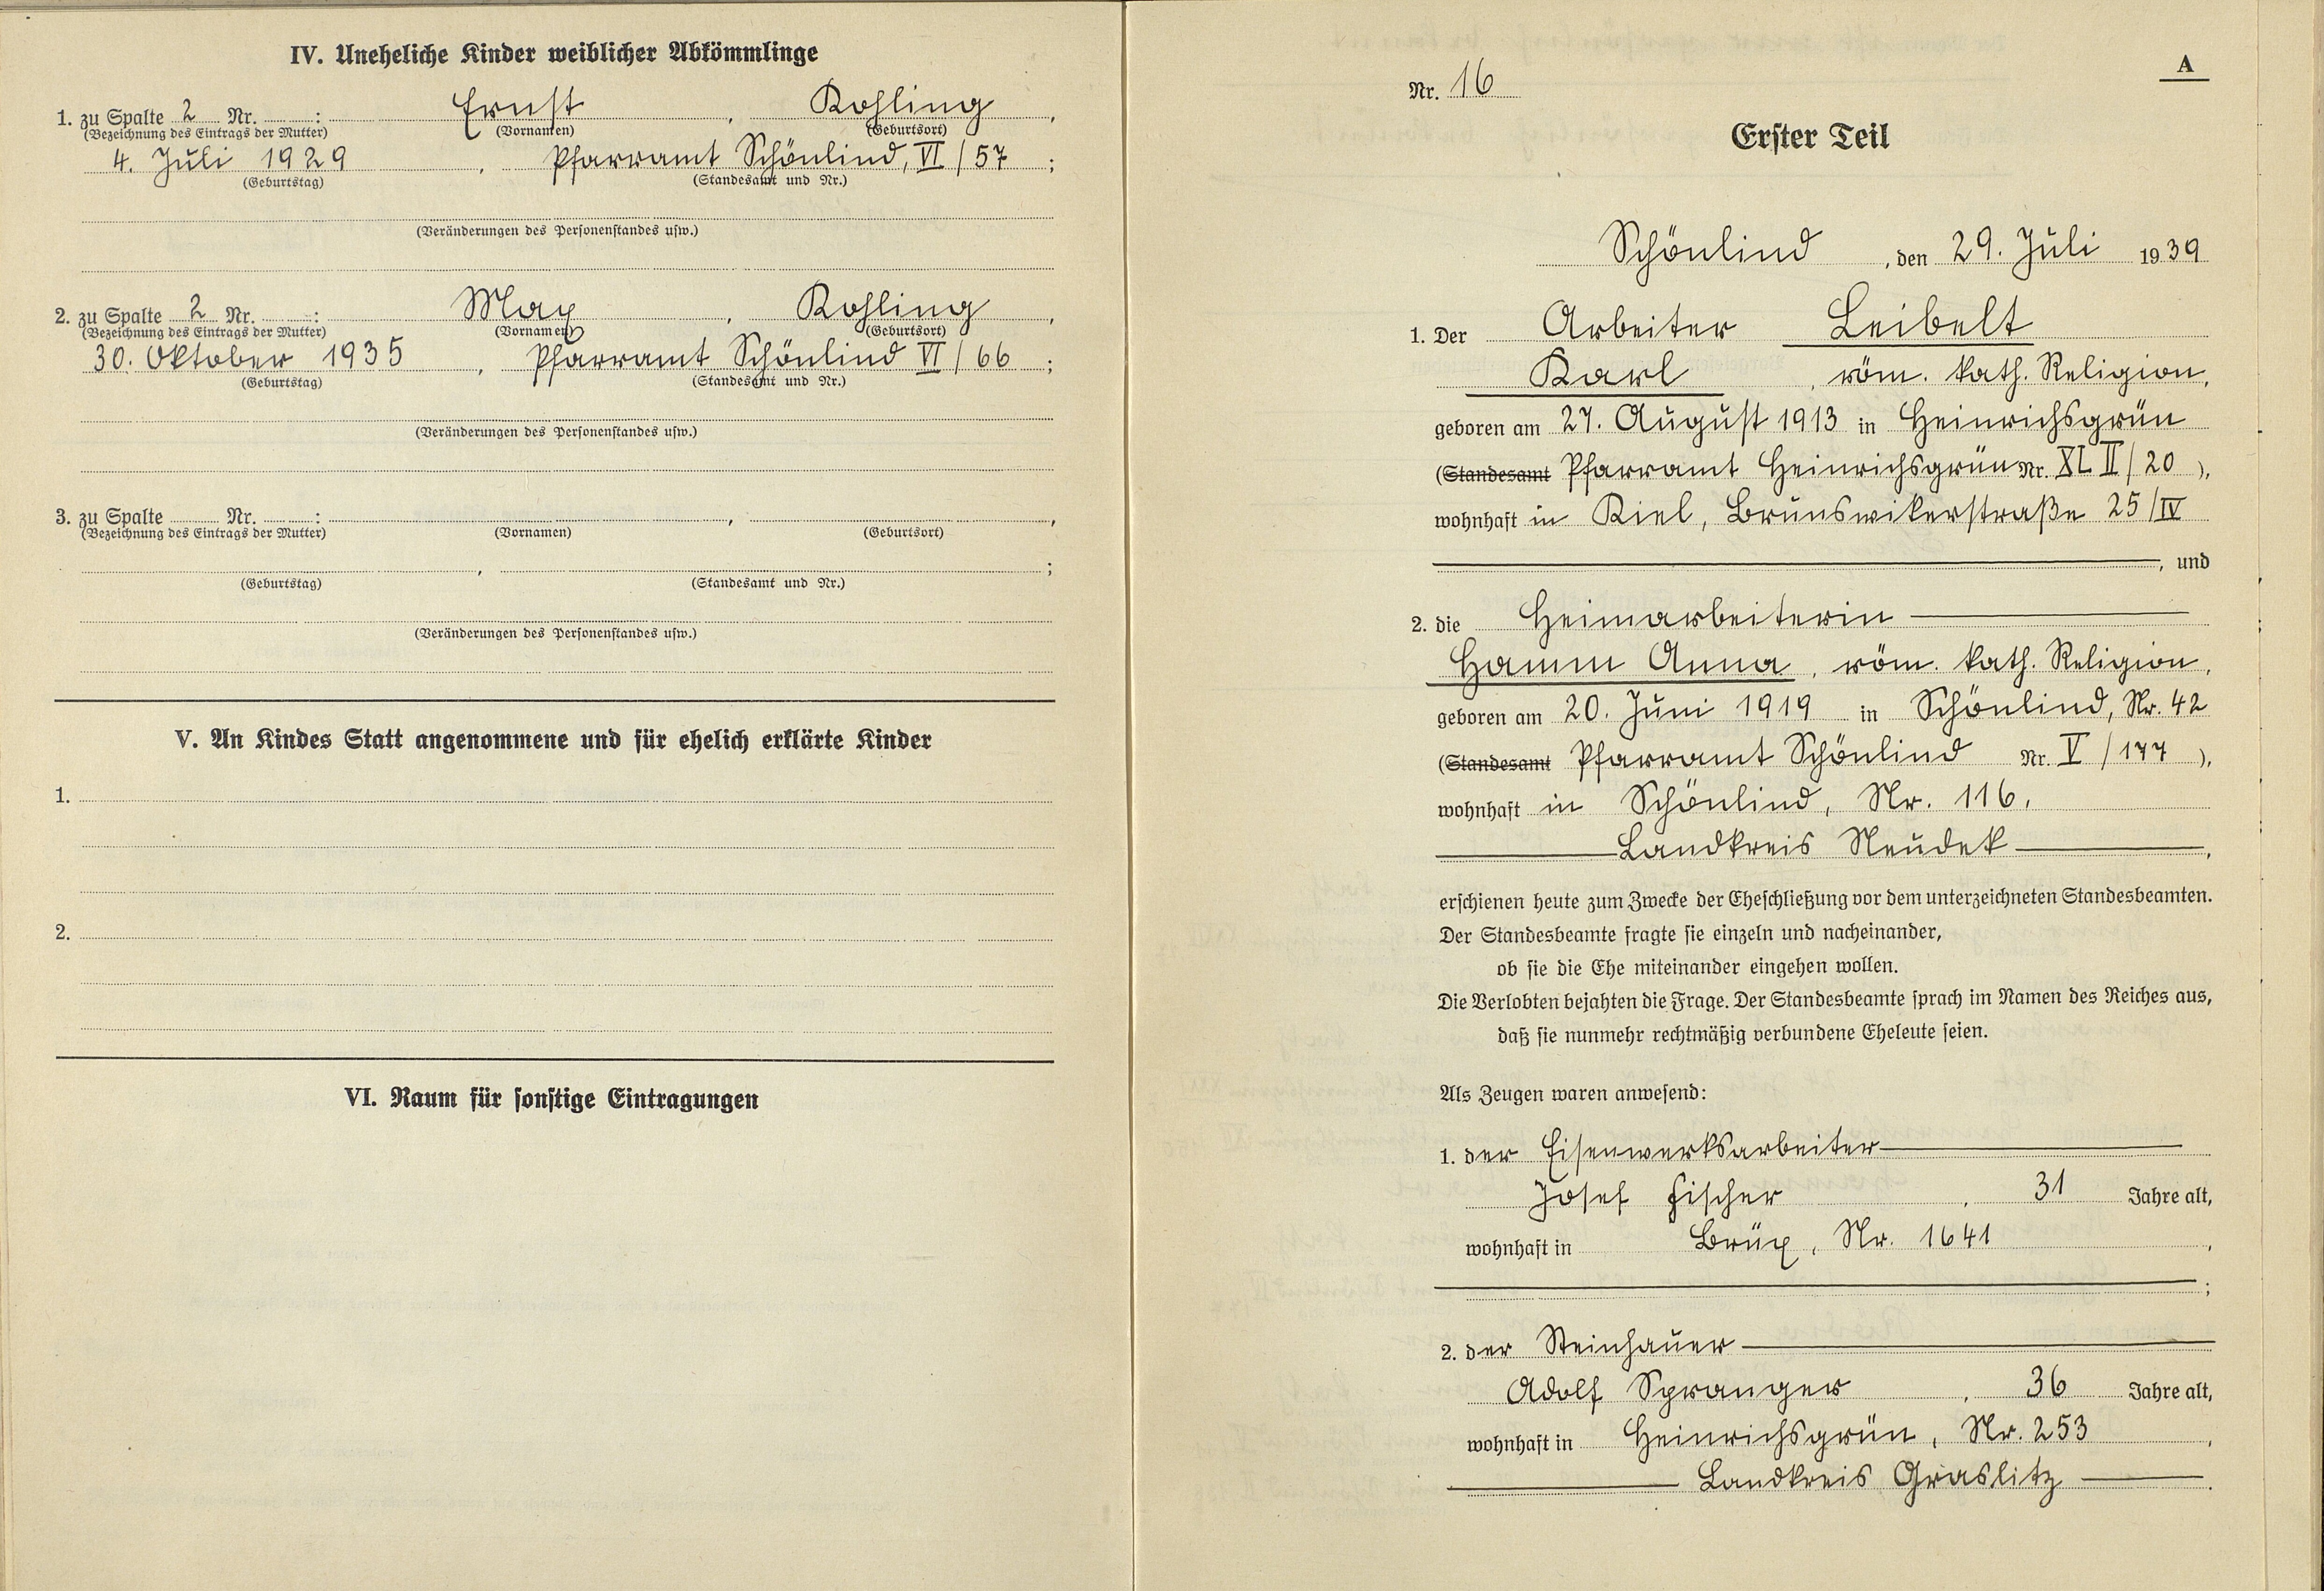 IV. Uneheliche Kinder weiblicher Abkömmlinge
1. zu Spalte 2 Nr. : Ernst , Kohling ,
(Bezeichnung des Eintrags der Mutter) (Vornamen) (Geburtsort)
4. Juli 1929 , Pfarramt Schönlind, VI / 57 ;
(Geburtstag) (Standesamt und Nr.)
(Veränderungen des Personenstandes usw.)
2. zu Spalte 2 Nr. : Max , Kohling ,
(Bezeichnung des Eintrags der Mutter) (Vornamen) (Geburtsort)
30. Oktober 1935 , Pfarramt Schönlind VI / 66 ;
(Geburtstag) (Standesamt und Nr.)
(Veränderungen des Personenstandes usw.)
3. zu Spalte Nr. : , ,
(Bezeichnung des Eintrags der Mutter) (Vornamen) (Geburtsort)
, ;
(Geburtstag) (Standesamt und Nr.)
(Veränderungen des Personenstandes usw.)
V. An Kindes Statt angenommene und für ehelich erklärte Kinder
1.
2.
VI. Raum für sonstige Eintragungen
A
Nr. 16
Erster Teil
Schönlind , den 29. Juli 1939
1. Der Arbeiter Leibelt
Karl , röm. kath. Religion,
geboren am 27. August 1913 in Heinrichsgrün
(Standesamt Pfarramt Heinrichsgrün Nr. XL II / 20 ),
wohnhaft in Kiel, Brunswikerstraße 25/IV
, und
2. die Heimarbeiterin
Hamm Anna , röm. kath. Religion,
geboren am 20. Juni 1919 in Schönlind, Nr. 42
(Standesamt Pfarramt Schönlind Nr. V / 177 ),
wohnhaft in Schönlind, Nr. 116,
Landkreis Neudek ,
erschienen heute zum Zwecke der Eheschließung vor dem unterzeichneten Standesbeamten.
Der Standesbeamte fragte sie einzeln und nacheinander,
ob sie die Ehe miteinander eingehen wollen.
Die Verlobten bejahten die Frage. Der Standesbeamte sprach im Namen des Reiches aus,
daß sie nunmehr rechtmäßig verbundene Eheleute seien.
Als Zeugen waren anwesend:
1. der Eisenwerksarbeiter
Josef Fischer , 31 Jahre alt,
wohnhaft in Brüx, Nr. 1641 ,
;
2. der Steinhauer
Adolf Spranger , 36 Jahre alt,
wohnhaft in Heinrichsgrün, Nr. 253 ,
Landkreis Graslitz .